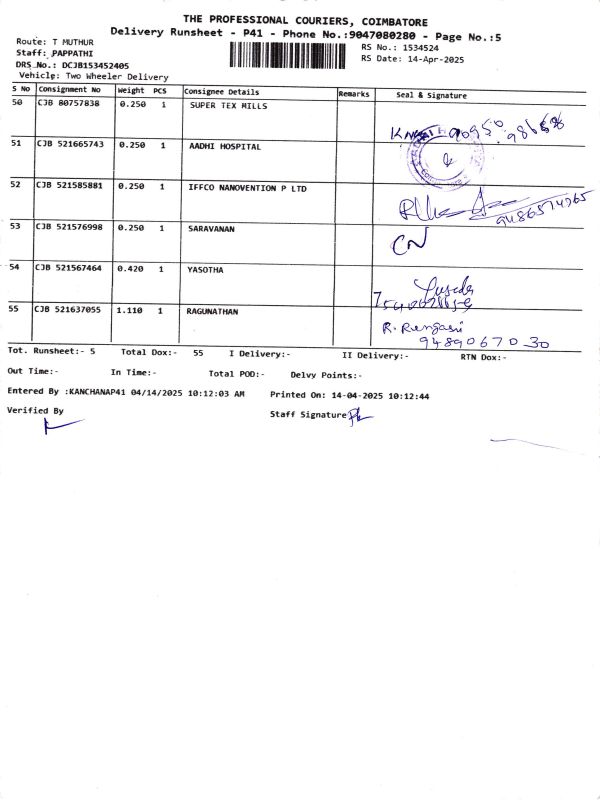 THE PROFESSIONAL COURIERS, COIMBATORE
Delivery Runsheet - P41 - Phone No.:9047080280 - Page No.:5
Route: T MUTHUR
RS No.: 1534524
Staff: PAPPATHI
RS Date: 14-Apr-2025
DRS No.: DCJB153452405
Vehicle: Two Wheeler Delivery
S No Consignment No Weight PCS Consignee Details Remarks Seal & Signature
50 CJB 80757838 0.250 1 SUPER TEX MILLS
51 CJB 521665743 0.250 1 AADHI HOSPITAL
52 CJB 521585881 0.250 1 IFFCO NANOVENTION P LTD
9486574765
53 CJB 521576998 0.250 1 SARAVANAN
CN
54 CJB 521567464 0.420 1 YASOTHA
55 CJB 521637055 1.110 1 RAGUNATHAN
R. Rengasri
9489067030
Tot. Runsheet:- 5 Total Dox:- 55 I Delivery:- II Delivery:- RTN Dox:-
Out Time:- In Time:- Total POD:- Delvy Points:-
Entered By :KANCHANAP41 04/14/2025 10:12:03 AM Printed On: 14-04-2025 10:12:44
Verified By Staff Signature